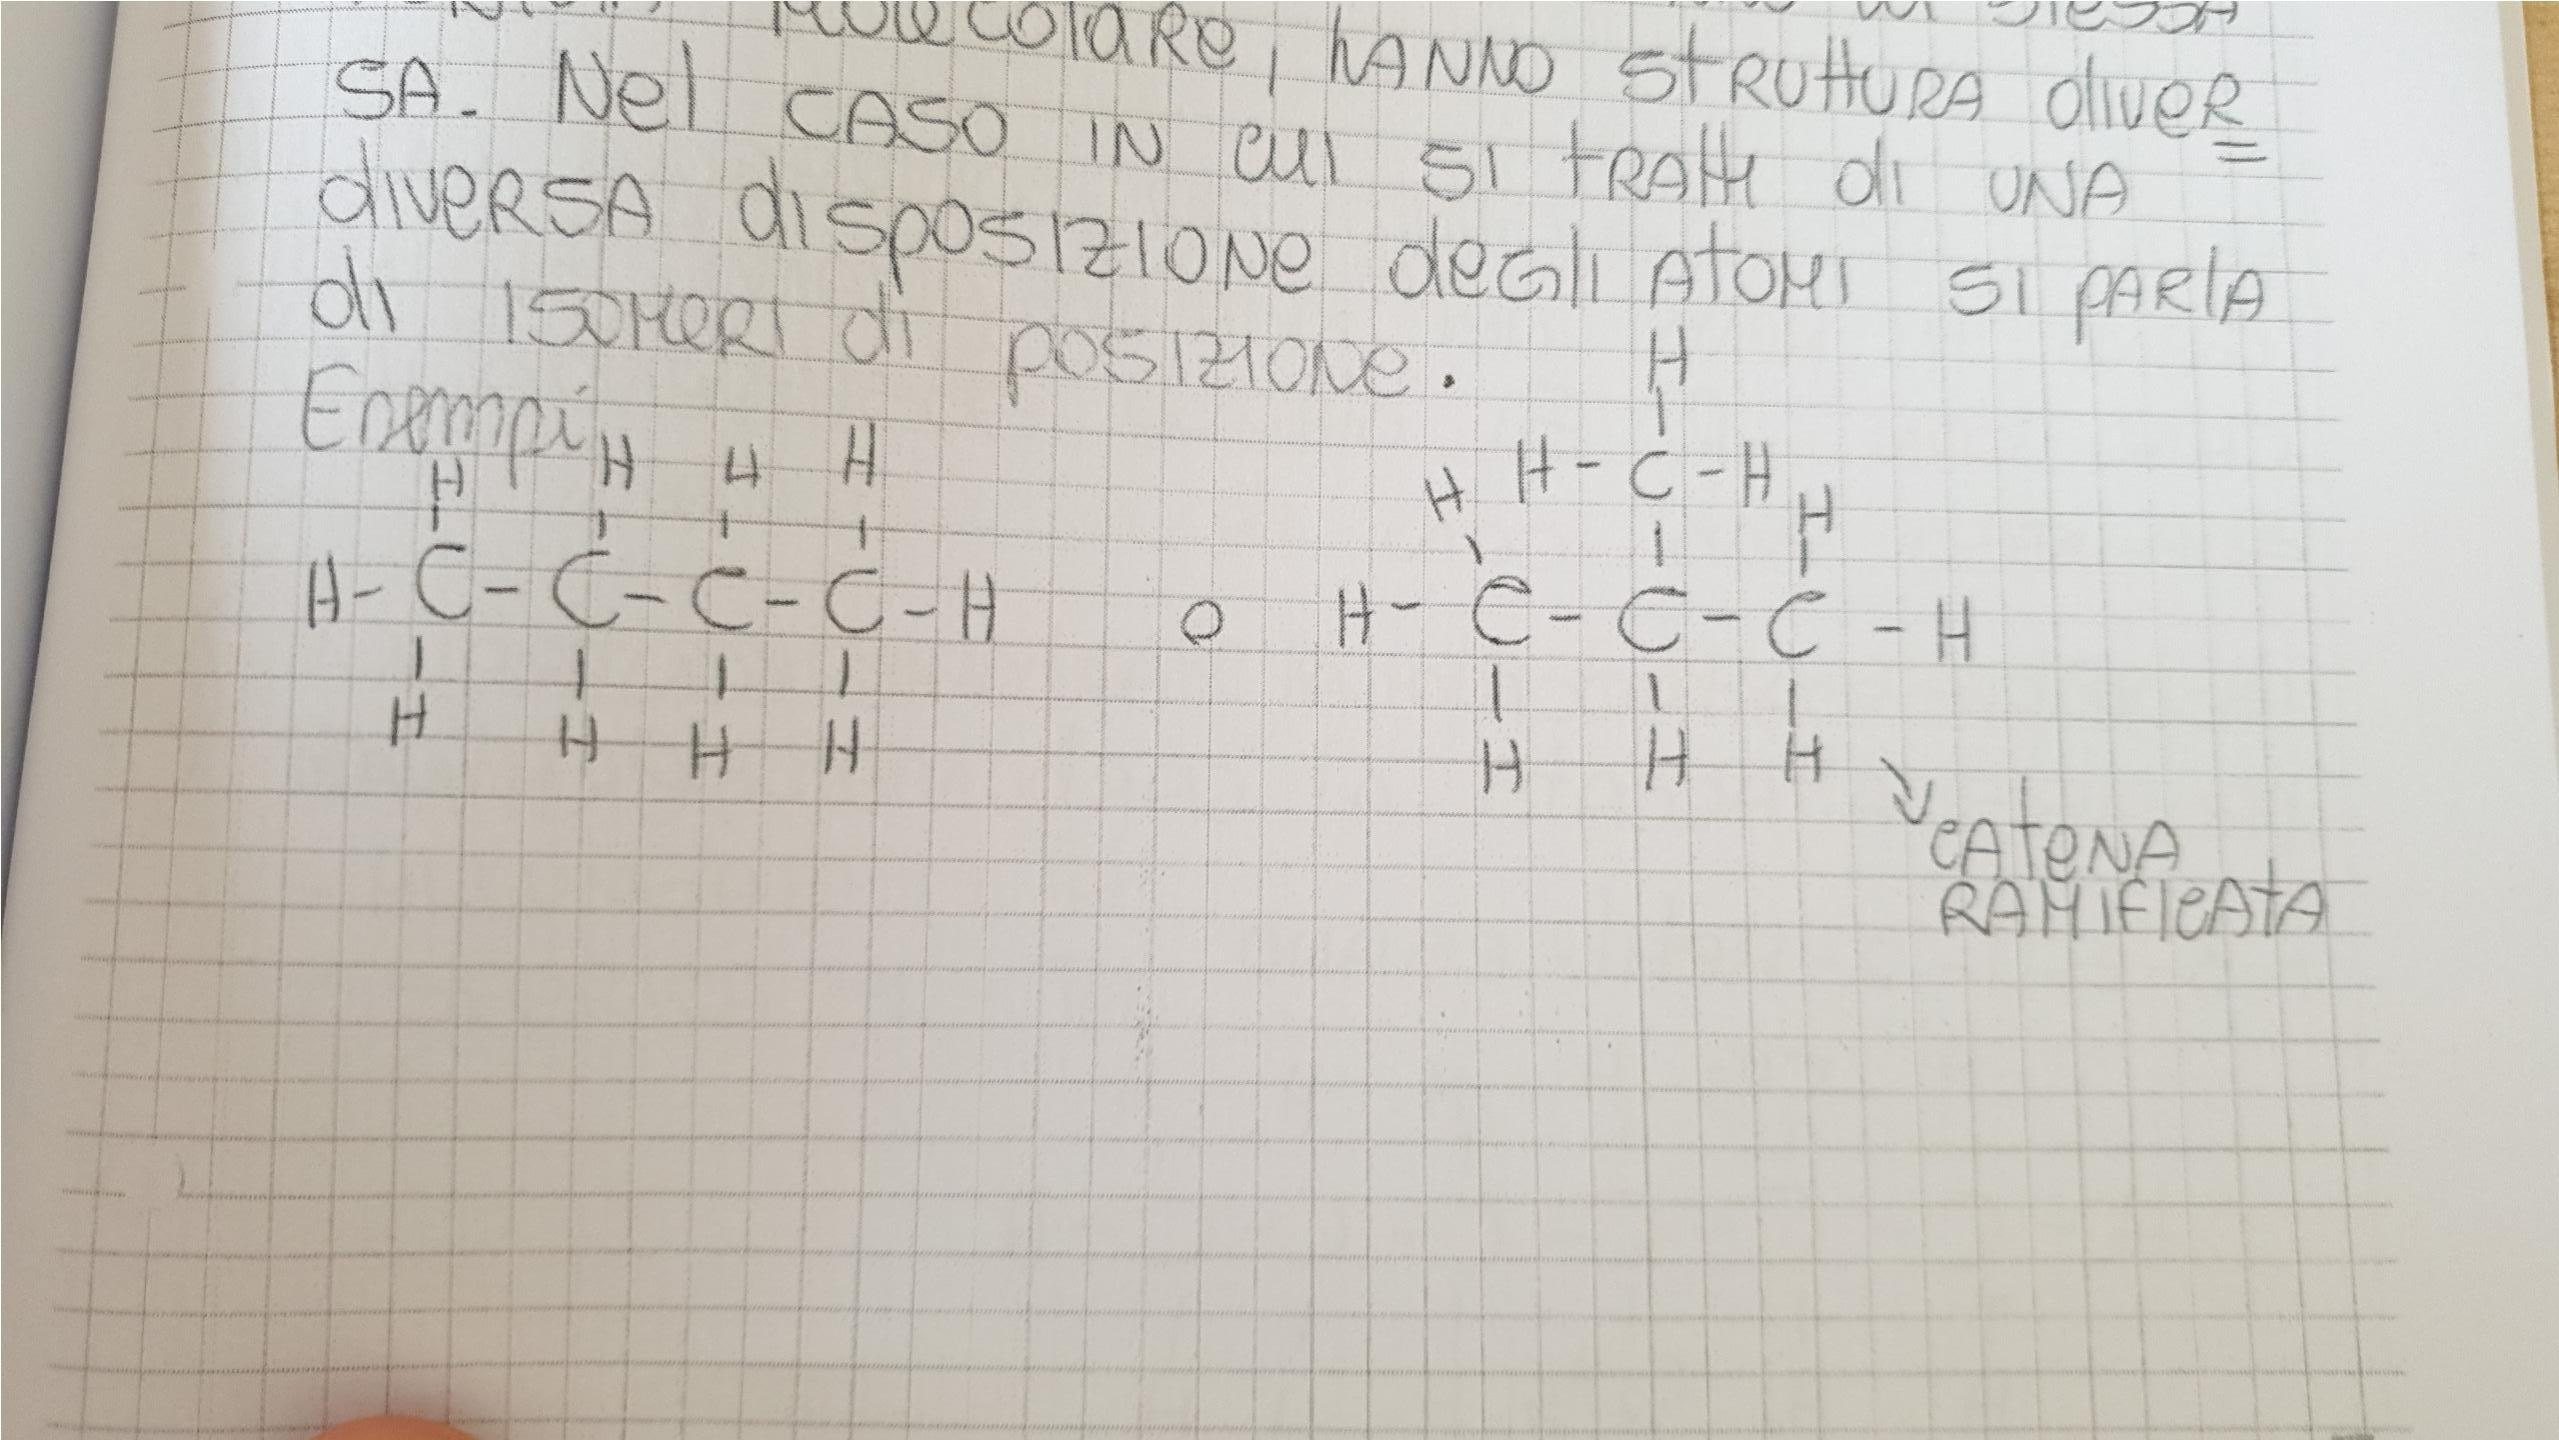 MOLECOLARE, HANNO STRUTTURA DIVER=
SA. Nel CASO IN CUI SI TRATTI di UNA
diVERSA disposizione degli ATOMI si PARLA
di ISOMERI di POSIZIONE.
Esempi
H
H H H H
H H - C - H H
H - C - C - C - C - H o H - C - C - C - H
H H H H H H H
CATENA
RAMIFICATA